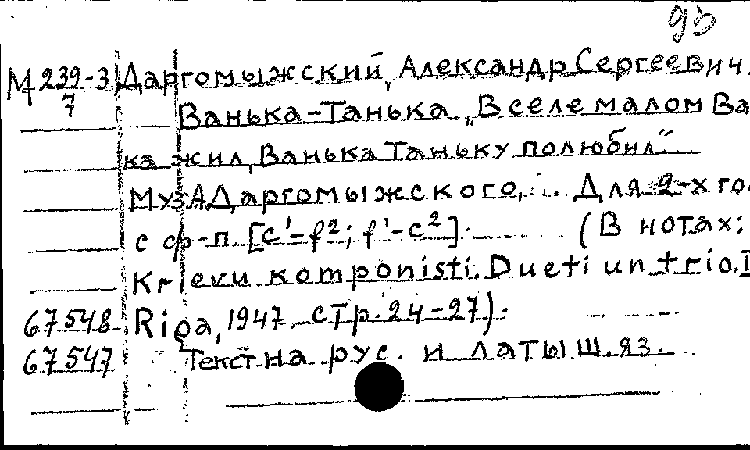 93
М 239-3 Даргомыжский, Александр Сергеевич.
7
Ванька-Танька. „В селе малом Ва
ка жил, Ванька Таньку полюбил"
Муз А Даргомыжского, Для 2-х го
с ф-п. [c¹-f²; f¹-c²]. (В нотах:
Krievu komponisti. Dueti un trio. I
67548 Riga, 1947 стр. 24-27).
67547 Текст на рус. и латыш. яз.